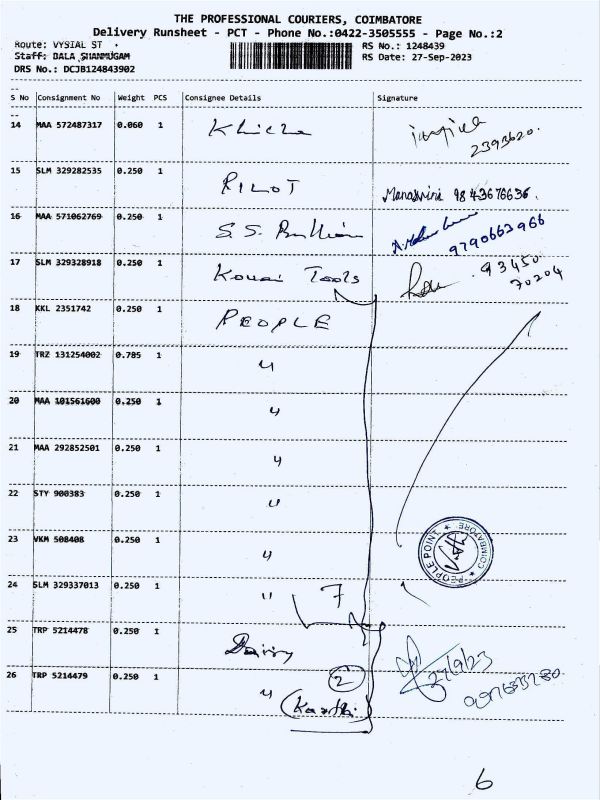 THE PROFESSIONAL COURIERS, COIMBATORE
Delivery Runsheet - PCT - Phone No.:0422-3505555 - Page No.:2
Route: VYSIAL ST RS No.: 1248439
Staff: BALA SHANMUGAM RS Date: 27-Sep-2023
DRS No.: DCJB124843902
S No Consignment No Weight PCS Consignee Details Signature
14 MAA 572487317 0.060 1
2393620.
15 SLM 329282535 0.250 1 PILOT Manasvini 9843676636.
16 MAA 571062769 0.250 1 S.S. Bullion 9790663966
17 SLM 329328918 0.250 1 Kovai Tools 93450
70204
18 KKL 2351742 0.250 1 PEOPLE
19 TRZ 131254002 0.785 1 "
20 MAA 101561600 0.250 1 "
21 MAA 292852501 0.250 1 "
22 STY 900383 0.250 1 "
23 VKM 508408 0.250 1 "
PEOPLE POINT ★ COIMBATORE ★
24 SLM 329337013 0.250 1 " 7
25 TRP 5214478 0.250 1 Dairy 27/9/23
26 TRP 5214479 0.250 1 " 2
(Karthi)
6